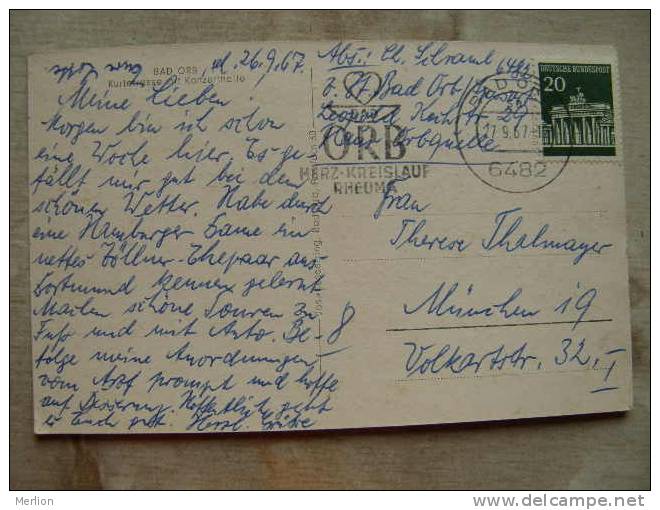 BAD ORB
d. 26.9.67.
Meine Lieben
Morgen bin ich schon
eine Woche hier. Es ge-
fällt mir gut bei dem
schönen Wetter. Habe durch
eine Hamburger Dame ein
nettes Zöllner-Ehepaar aus
Dortmund kennen gelernt
Machen schöne Touren zu
Fuß und mit Auto. Be-
folge meine Anordnungen
vom Arzt prompt und hoffe
auf Besserung. Hoffentlich geht
es Euch gut. Herzl. Grüße
Abs.: Ch. 6482
z. Zt. Bad Orb
Leopold Koch Str. 29
Haus Orbquelle
ORB
HERZ·KREISLAUF
RHEUMA
27.9.67
6482
DEUTSCHE BUNDESPOST
20
Frau
Therese Thalmayer
8 München 19
Volkartstr. 32. I
Merlion
www.delcampe.net